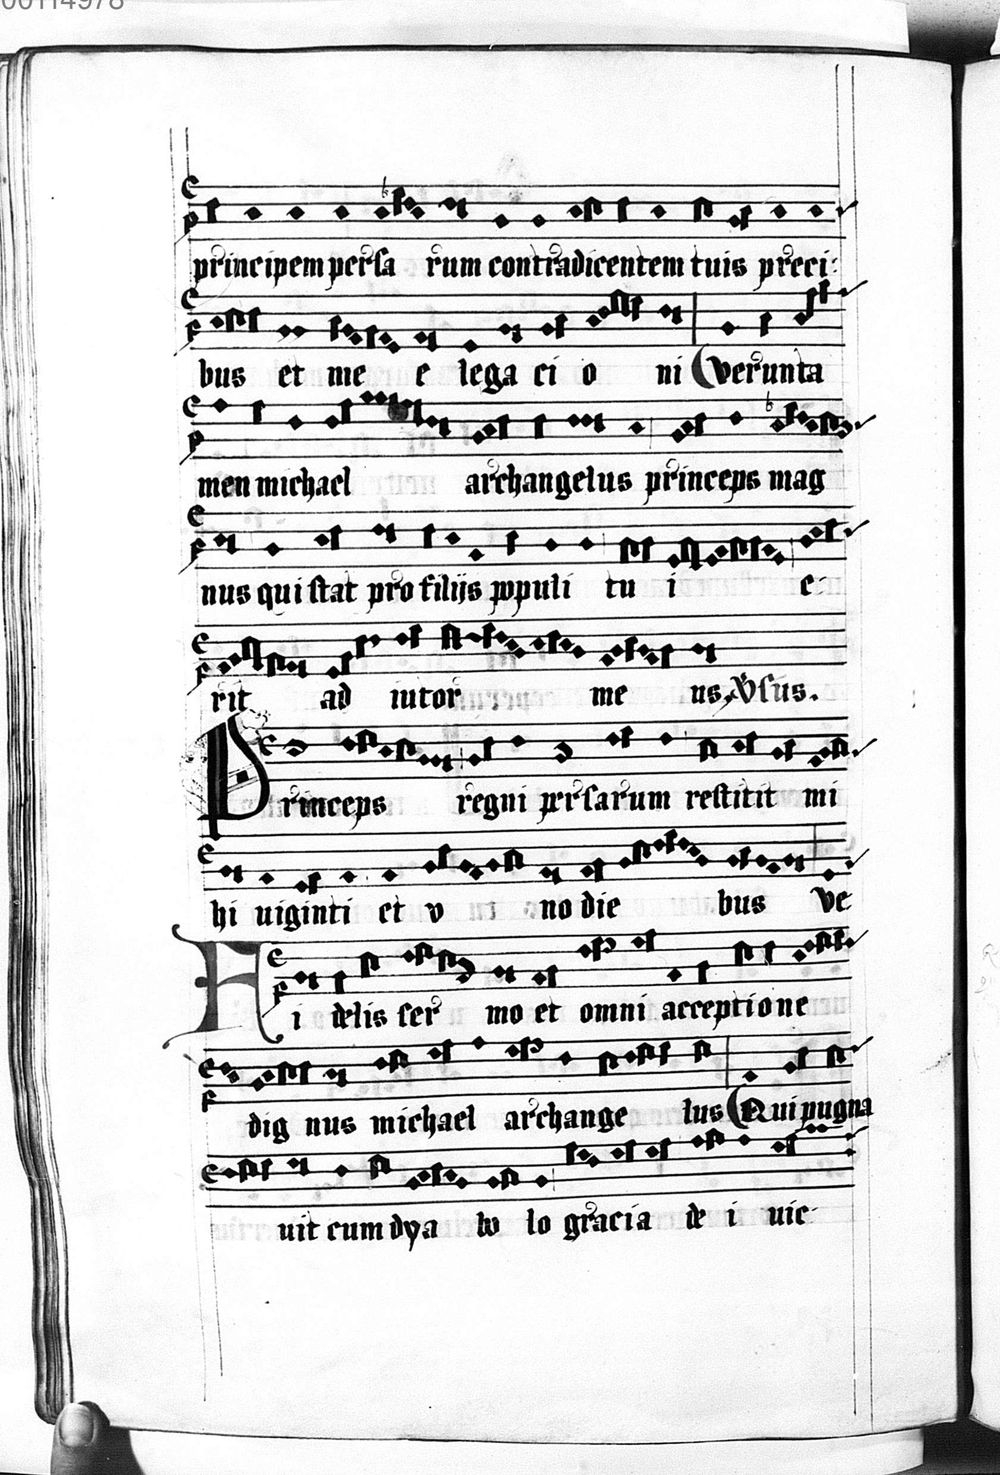 00114978
principem persa rum contradicentem tuis preci
bus et me e lega ci o ni verunta
men michael archangelus princeps mag
nus qui stat pro filijs populi tu i e
rit ad iutor me us. Vsus.
Princeps regni persarum restitit mi
hi uiginti et v no die bus ve
Fi delis ser mo et omni acceptione
dig nus michael archange lus Qui pugna
uit cum dya bo lo gracia de i uic